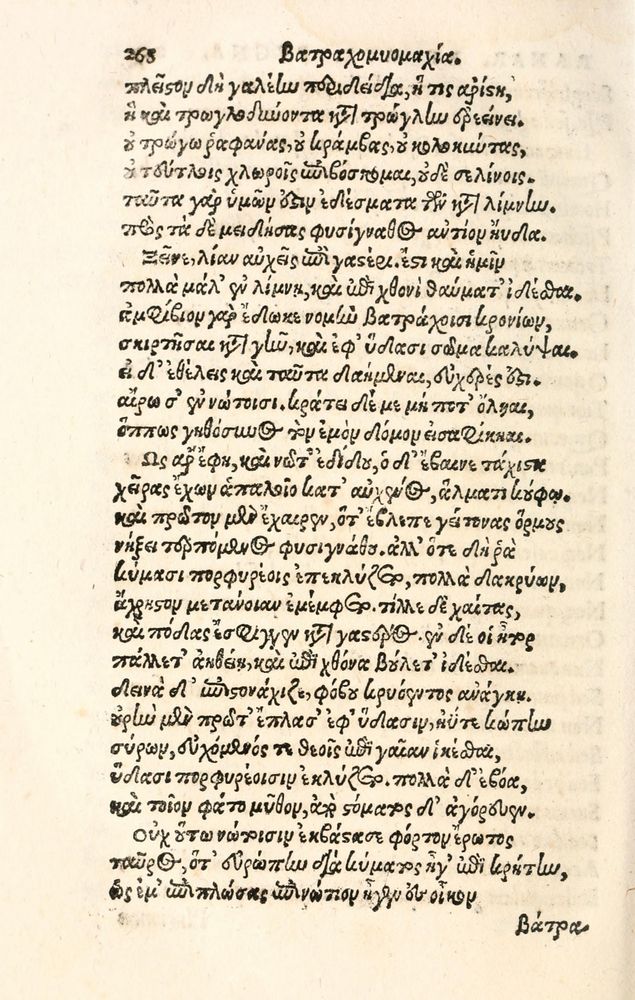 268 Βατραχομυομαχία.
πλεῖστον δὴ γαλέην περιδείδια, ἥ τις ἀρίστη,
ἣ καὶ τρωγλοδύνοντα κατὰ τρώγλην ἐρεείνει.
οὐ τρώγω ῥαφάνας, οὐ κράμβας, οὐ κολοκύντας,
οὐ τεύτλοις χλωροῖς ἐπιβόσκομαι, οὐδὲ σελίνοις.
ταῦτα γὰρ ὑμῶν ἐστὶν ἐδέσματα τῶν κατὰ λίμνην.
πρὸς τὰ δὲ μειδήσας φυσίγναθος ἀντίον ηὔδα.
Ξεῖνε, λίαν αὐχεῖς ἐπὶ γαστέρι. ἔστι καὶ ἡμῖν
πολλὰ μάλ' ἐν λίμνῃ, καὶ ἐπὶ χθονὶ θαύματ' ἰδέσθαι.
ἀμφίβιον γὰρ ἔδωκε νομὴν Βατράχοισι κρονίων,
σκιρτῆσαι κατὰ γῆν, καὶ ἐφ' ὕδασι σῶμα καλύψαι.
εἰ δ' ἐθέλεις καὶ ταῦτα δαήμεναι, εὐχερές ἐστι.
αἴρω σ' ἐν νώτοισι. κράτει δέ με μή ποτ' ὄληαι,
ὅππως γηθόσυνος τὸν ἐμὸν δόμον εἰσαφίκηαι.
Ὣς ἄρ' ἔφη, καὶ νῶτ' ἐδίδου, ὁ δ' ἔβαινε τάχιστα
χεῖρας ἔχων ἁπαλοῖο κατ' αὐχένος, ἅλματι κούφῳ.
καὶ πρῶτον μὲν ἔχαιρεν, ὅτ' ἔβλεπε γείτονας ὅρμους
νήξει τερπόμενος φυσιγνάθου. ἀλλ' ὅτε δή ῥα
κύμασι πορφυρέοις ἐπεκλύζετο, πολλὰ δακρύων,
ἄχρηστον μετάνοιαν ἐμέμφετο. τίλλε δὲ χαίτας,
καὶ πόδας ἔσφιγγεν κατὰ γαστέρος. ἐν δέ οἱ ἦτορ
πάλλετ' ἀηθείῃ, καὶ ἐπὶ χθόνα βούλετ' ἰδέσθαι.
δεινὰ δ' ἐπεστονάχιζε, φόβου κρυόεντος ἀνάγκῃ.
οὐρὴν μὲν πρῶτ' ἔπλασ' ἐφ' ὕδασιν, ἠΰτε κώπην
σύρων, εὐχόμενός τε θεοῖς ἐπὶ γαῖαν ἱκέσθαι,
ὕδασι πορφυρέοισιν ἐκλύζετο. πολλὰ δ' ἐβόα,
καὶ τοῖον φάτο μῦθον, ἀπὸ στόματος δ' ἀγόρευεν.
Οὐχ οὕτω νώτοισιν ἐβάστασε φόρτον ἔρωτος
ταῦρος, ὅτ' εὐρώπην διὰ κύματος ἦγ' ἐπὶ κρήτην,
ὡς ἔμ' ἐπιπλώσας ἐπινώτιον ἦγεν ἐς οἶκον
Βάτρα-